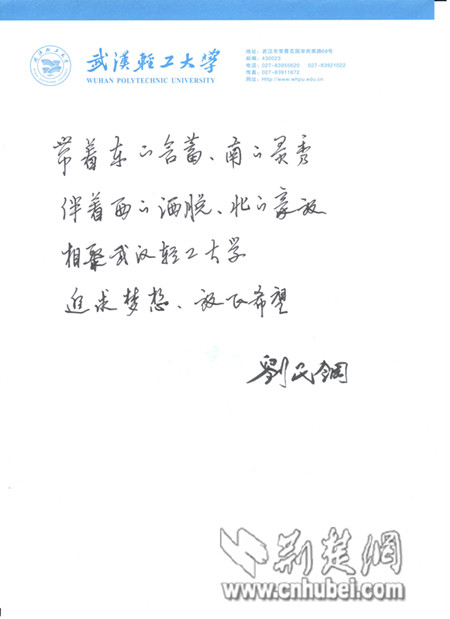 武漢輕工大學
WUHAN POLYTECHNIC UNIVERSITY
地址：武汉市常青花园学府南路68号
邮编：430023
电话：027-83955620 027-83921022
传真：027-83911672
网址：http://www.whpu.edu.cn
带着东的含蓄、南的灵秀
伴着西的洒脱、北的豪放
相聚武汉轻工大学
追求梦想、放飞希望
劉民鋼
荆楚網
www.cnhubei.com